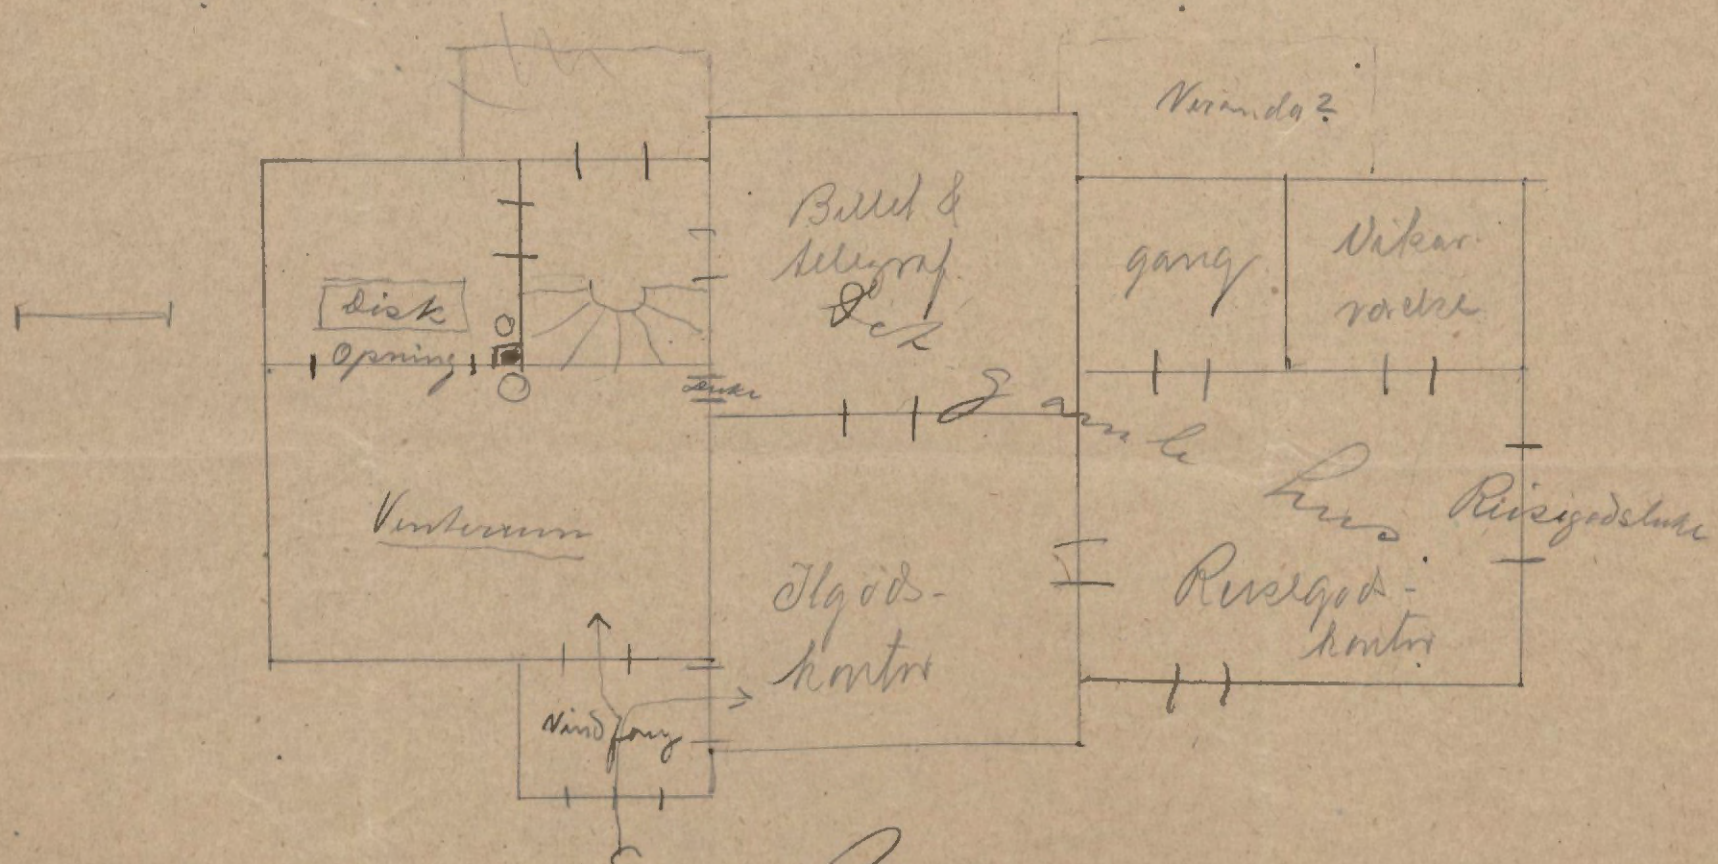 Veranda?
Billet &
telegraf
gang
Vikar
værelse
Disk
Opning
Luke
Gamle
hus
Venterum
Reisegodsluke
Ilgods-
kontor
Reisegods-
kontor
Vindfang